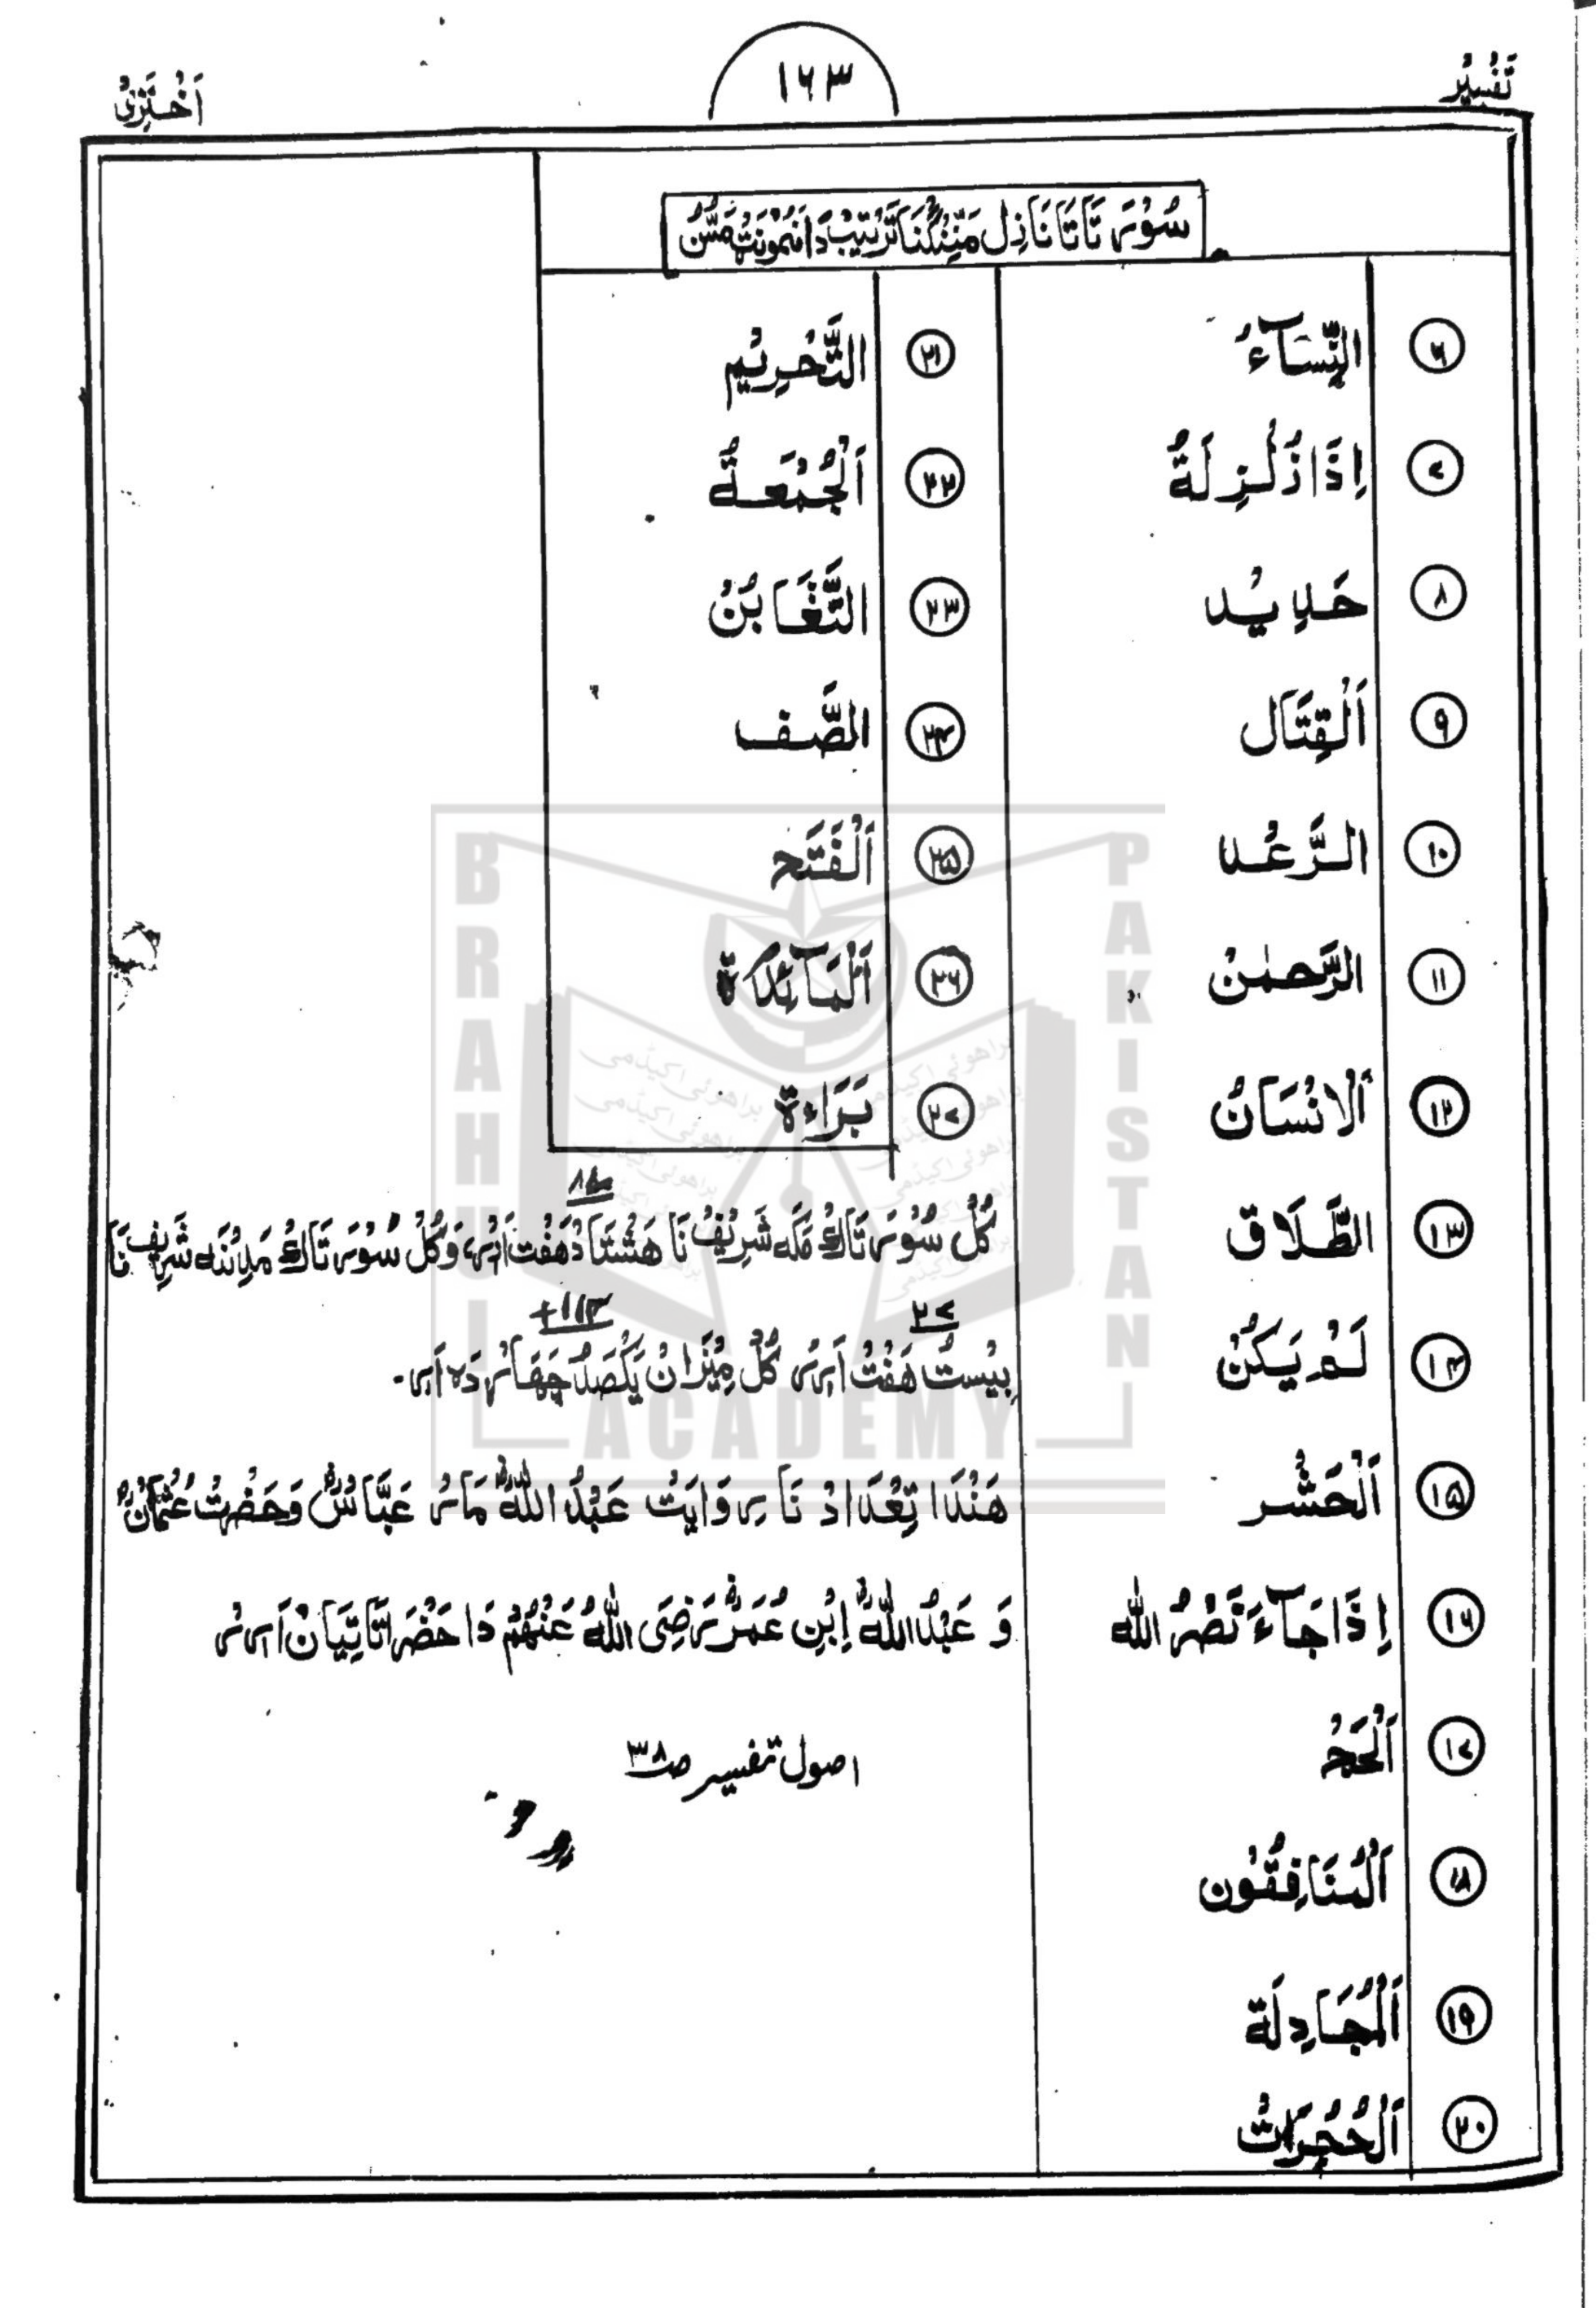 تَفْسِیْرُ
١٦٣
اَخْتَرْنَیْ
سُوْرَ تَا تَا نَازِل مَنِّنْگُنَا تَرْتِیْب دَا نُمُوْنَتْ
٦ النِّسَآءُ
٧ اِذَا زُلْزِلَةُ
٨ حَدِیْد
٩ اَلْقِتَال
١٠ الرَّعْد
١١ الرَّحمٰنْ
١٢ اَلْاِنْسَانُ
١٣ الطَّلَاق
١٤ لَمْ یَکُنْ
١٥ اَلْحَشْر
١٦ اِذَا جَآءَ نَصْرُ اللّٰه
١٧ اَلْحَجُّ
١٨ اَلْمُنَافِقُوْن
١٩ اَلْمُجَادِلَة
٢٠ اَلْحُجُرَاتْ
٢١ التَّحْرِیْم
٢٢ اَلْجُمُعَةُ
٢٣ التَّغَابُنْ
٢٤ الصَّف
٢٥ اَلْفَتَح
٢٦ اَلْمَآئِدَة
٢٧ بَرَاءة
٨٧
کُلْ سُوْرَ تَاکْ مَکَّه شَرِیْفْ نَا هَشْتَادُ هَفْت اَرْ، وَکُلْ سُوْرَ تَاکْ مَدِیْنَه شَرِیْف نَا
٢٧ +١١٤
بِیْسْتُ هَفْتْ اَرَ کُلْ مِیْزَانْ یَکْصَدُ چَهَارْدَه اَرِ۔
هَنْدَا تِعْدَادْ نَا رِوَایَتْ عَبْدُ اللّٰهْ مَارِ عَبَّاسْ وَحَضْرَتْ عُثْمَانْ
وَ عَبْدُ اللّٰهْ اِبْنِ عُمَرْ رَضِیَ اللّٰهُ عَنْهُمْ دَا حَضْرَاتَا بَیَانْ اَرِ
اصول تفسیر صـ٣٨
BRAHUI
ACADEMY
PAKISTAN
براهوئی اکیڈمی